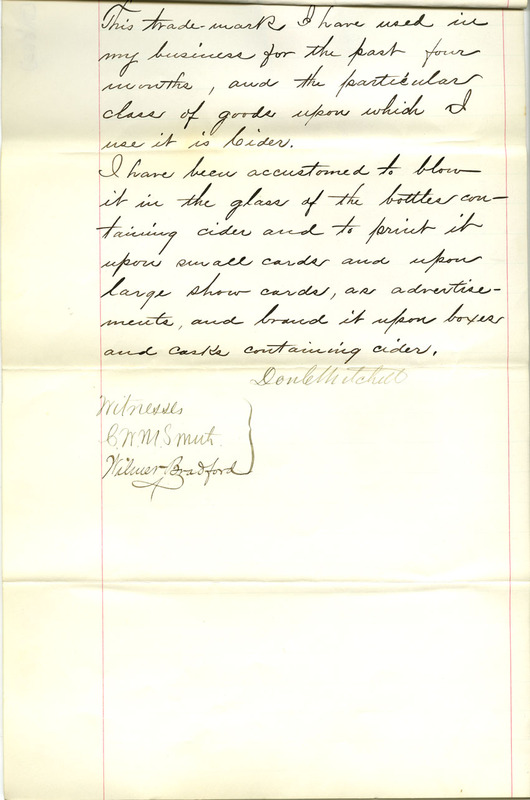 This trade-mark I have used in
my business for the past four
months, and the particular
class of goods upon which I
use it is Cider.
I have been accustomed to blow
it in the glass of the bottles con-
taining cider and to print it
upon small cards and upon
large show cards, as advertise-
ments, and brand it upon boxes
and casks containing cider.
Don C Mitchell
Witnesses
C. W. M. Smith
Wilmer Bradford